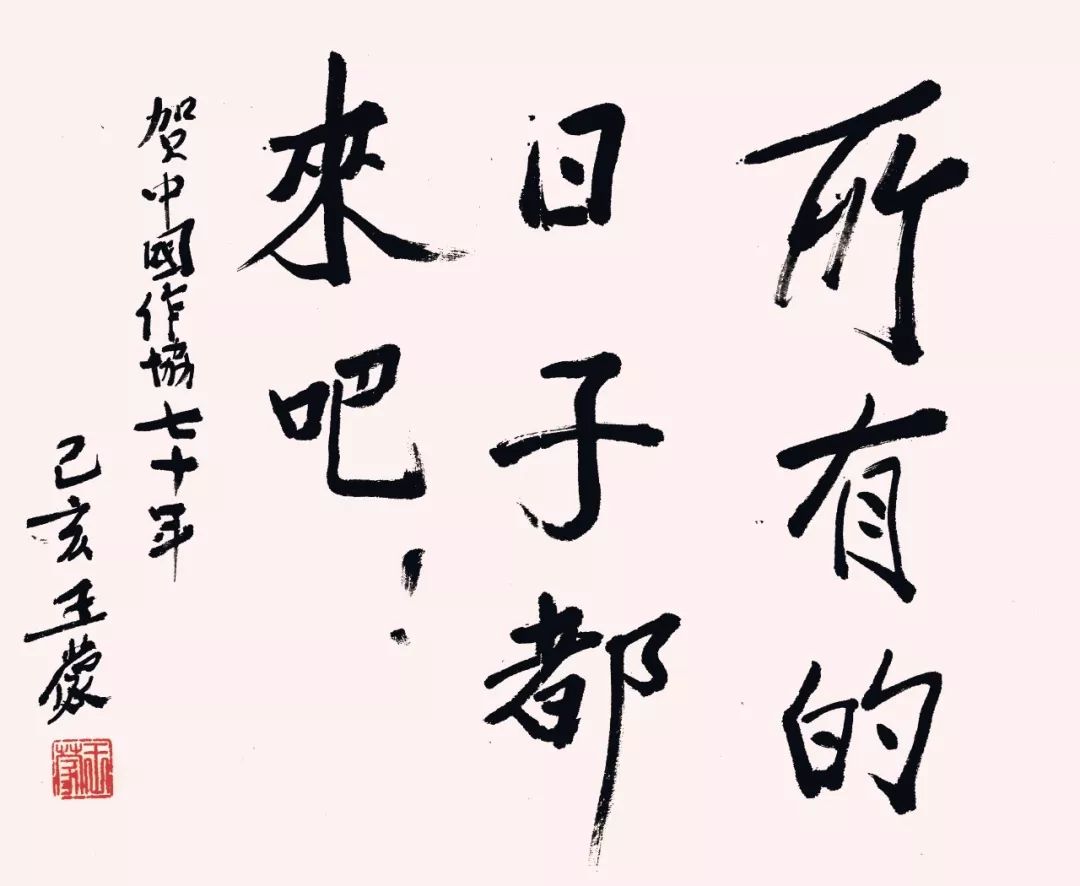 所有的
日子都
來吧！
贺中國作協七十年
己亥王蒙
王蒙